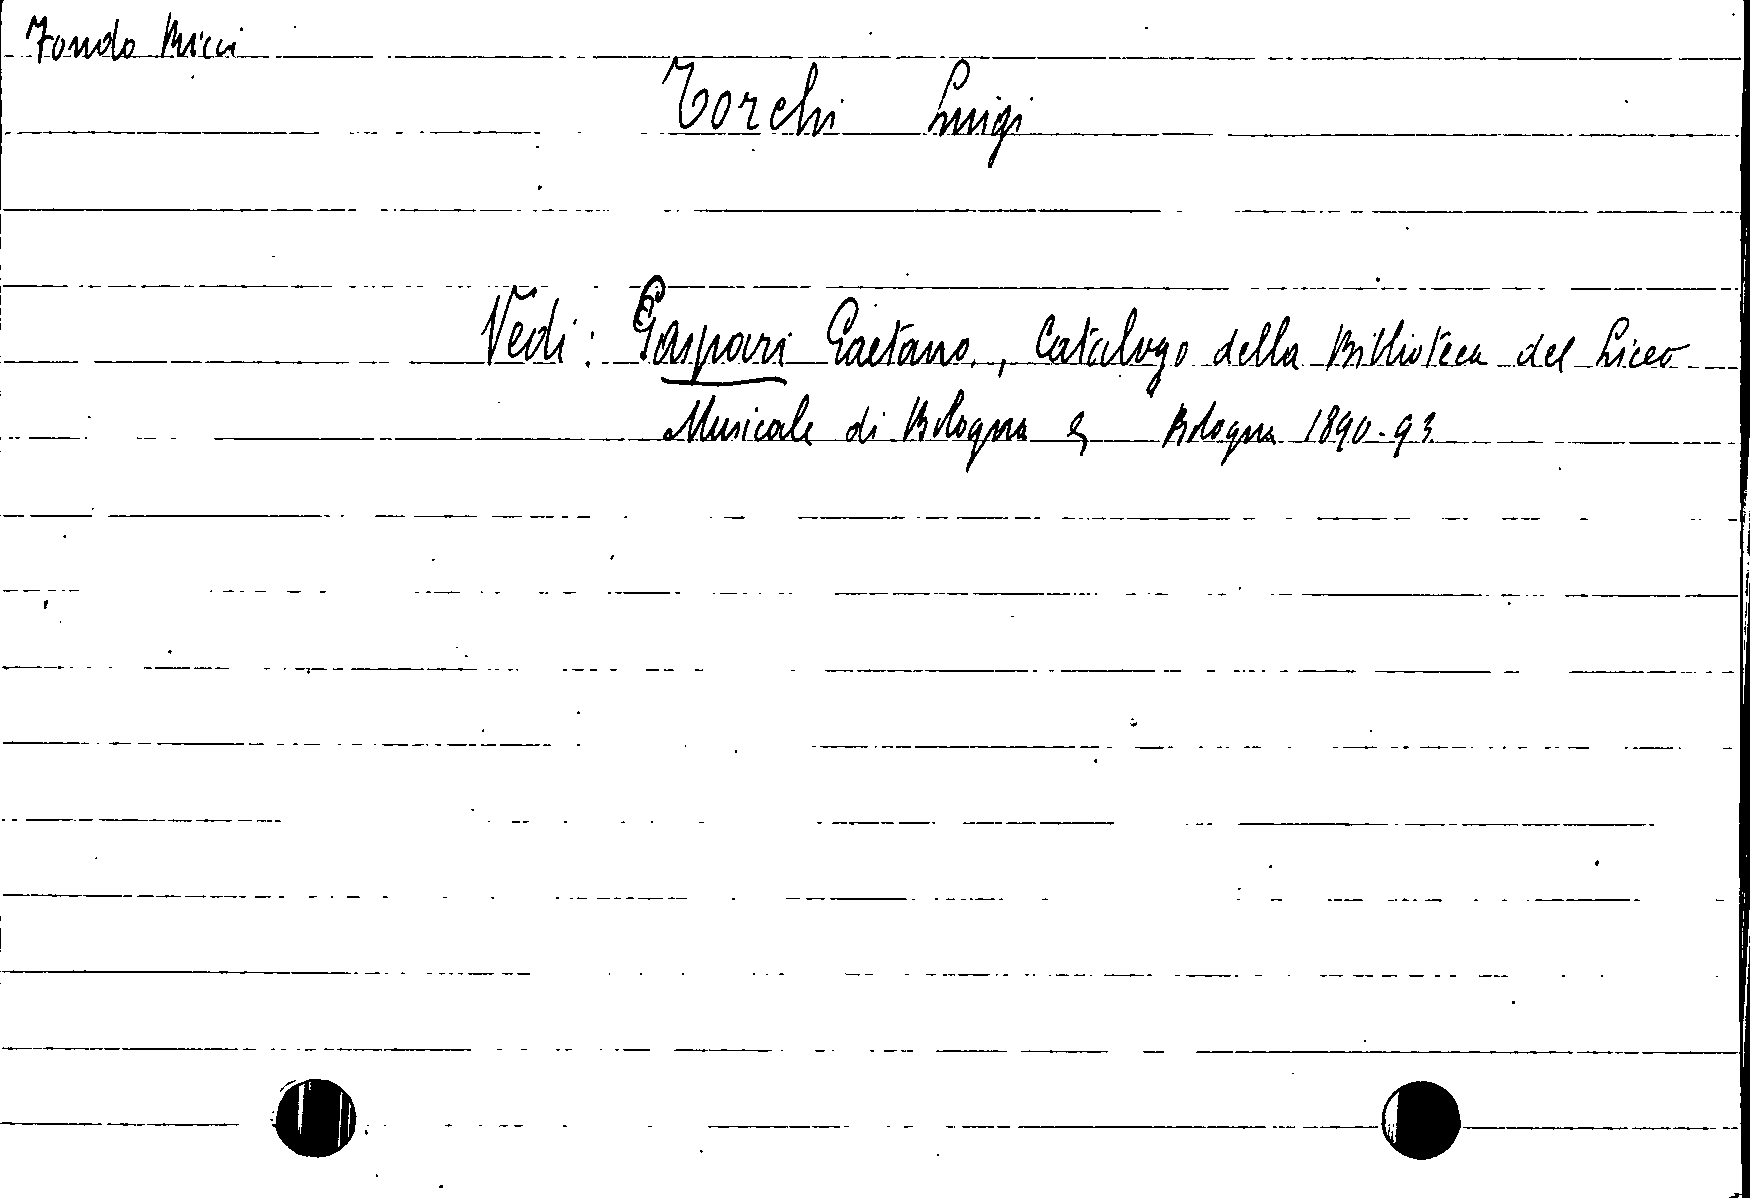 Fondo Ricci
Torchi Luigi
Vedi: Gaspari Gaetano., Catalogo della Biblioteca del Liceo
Musicale di Bologna Bologna 1890-93.